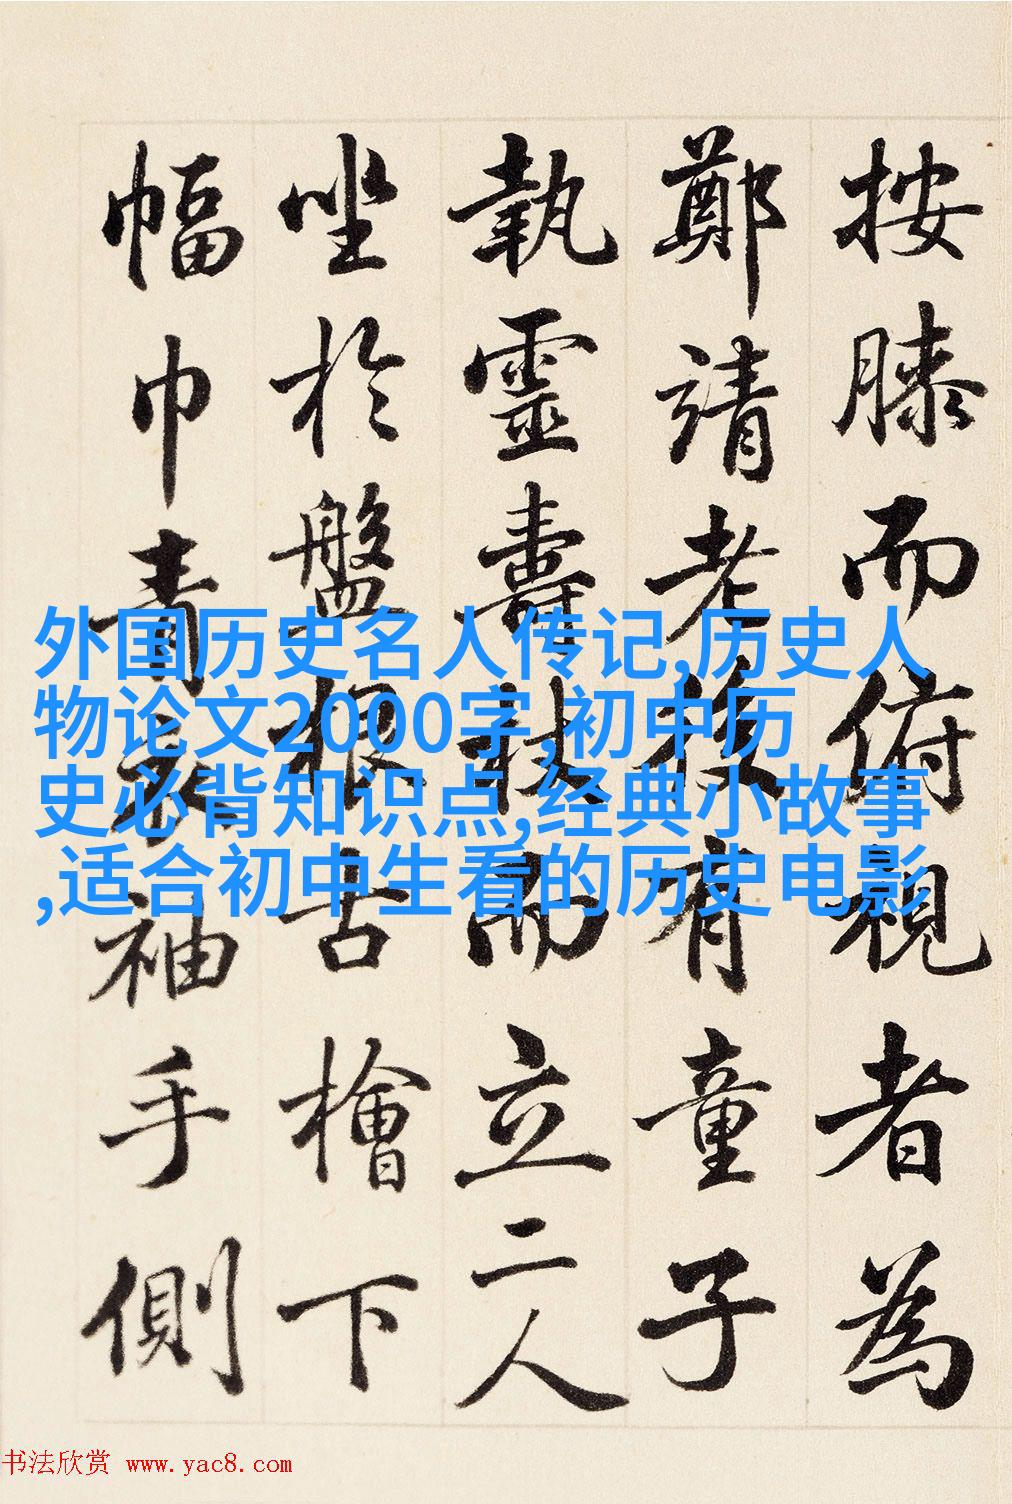 按膝而俯視者為
鄭靖老後有童子
執靈壽杖而立二人
坐於盤根古檜下
幅巾青衣袖手側
外国历史名人传记,历史人
物论文2000字,初中历
史必背知识点,经典小故事
,适合初中生看的历史电影
书法欣赏 www.yac8.com